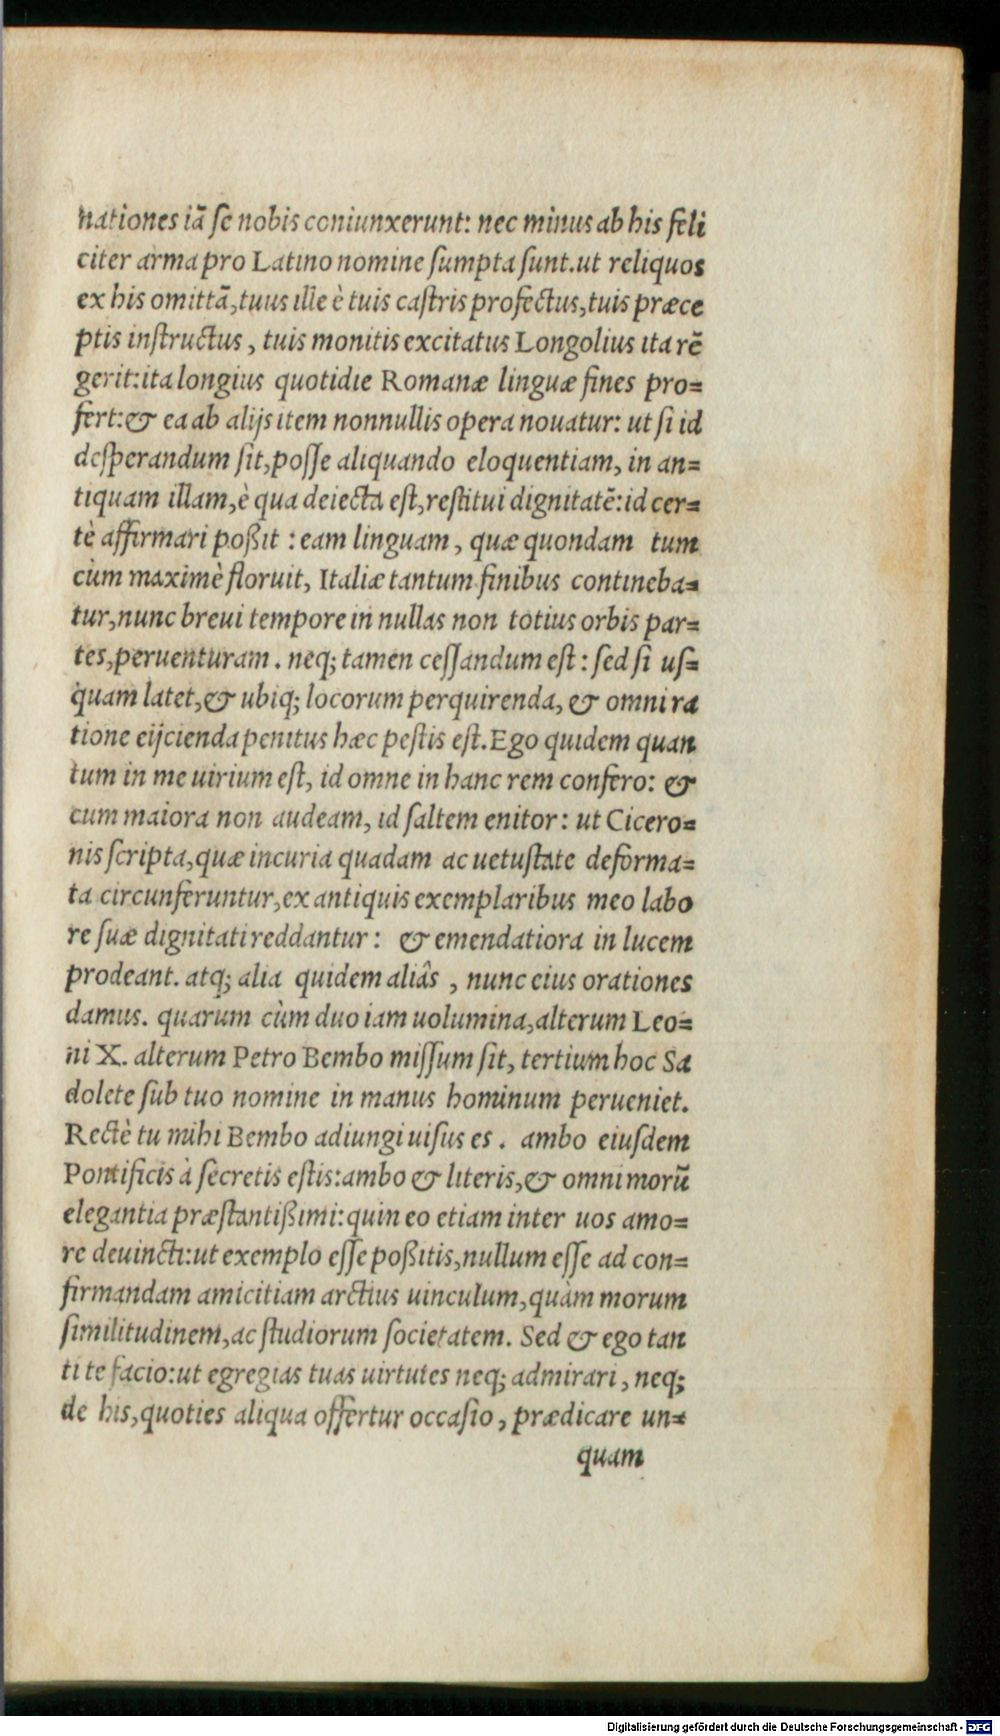 nationes iã ſe nobis coniunxerunt: nec minus ab his feli
citer arma pro Latino nomine ſumpta ſunt. ut reliquos
ex his omittã, tuus ille è tuis caſtris profectus, tuis præce
ptis inſtructus, tuis monitis excitatus Longolius ita rẽ
gerit: ita longius quotidie Romanæ linguæ fines pro=
fert: & ea ab alijs item nonnullis opera nouatur: ut ſi id
deſperandum ſit, poſſe aliquando eloquentiam, in an=
tiquam illam, è qua deiecta eſt, reſtitui dignitatẽ: id cer=
tè affirmari poßit : eam linguam, quæ quondam tum
cùm maximè floruit, Italiæ tantum finibus contineba=
tur, nunc breui tempore in nullas non totius orbis par=
tes, peruenturam. neq; tamen ceſſandum eſt: ſed ſi uſ=
quam latet, & ubiq; locorum perquirenda, & omni ra
tione eijcienda penitus hæc peſtis eſt. Ego quidem quan
tum in me uirium eſt, id omne in hanc rem confero: &
cum maiora non audeam, id ſaltem enitor: ut Cicero=
nis ſcripta, quæ incuria quadam ac uetuſtate deforma=
ta circunferuntur, ex antiquis exemplaribus meo labo
re ſuæ dignitati reddantur: & emendatiora in lucem
prodeant. atq; alia quidem aliâs, nunc eius orationes
damus. quarum cùm duo iam uolumina, alterum Leo=
ni X. alterum Petro Bembo miſſum ſit, tertium hoc Sa
dolete ſub tuo nomine in manus hominum perueniet.
Rectè tu mihi Bembo adiungi uiſus es. ambo eiuſdem
Pontificis à ſecretis eſtis: ambo & literis, & omni morũ
elegantia præſtantißimi: quin eo etiam inter uos amo=
re deuincti: ut exemplo eſſe poßitis, nullum eſſe ad con=
firmandam amicitiam arctius uinculum, quàm morum
ſimilitudinem, ac ſtudiorum ſocietatem. Sed & ego tan
ti te facio: ut egregias tuas uirtutes neq; admirari, neq;
de his, quoties aliqua offertur occaſio, prædicare un=
quam
Digitalisierung gefördert durch die Deutsche Forschungsgemeinschaft - DFG